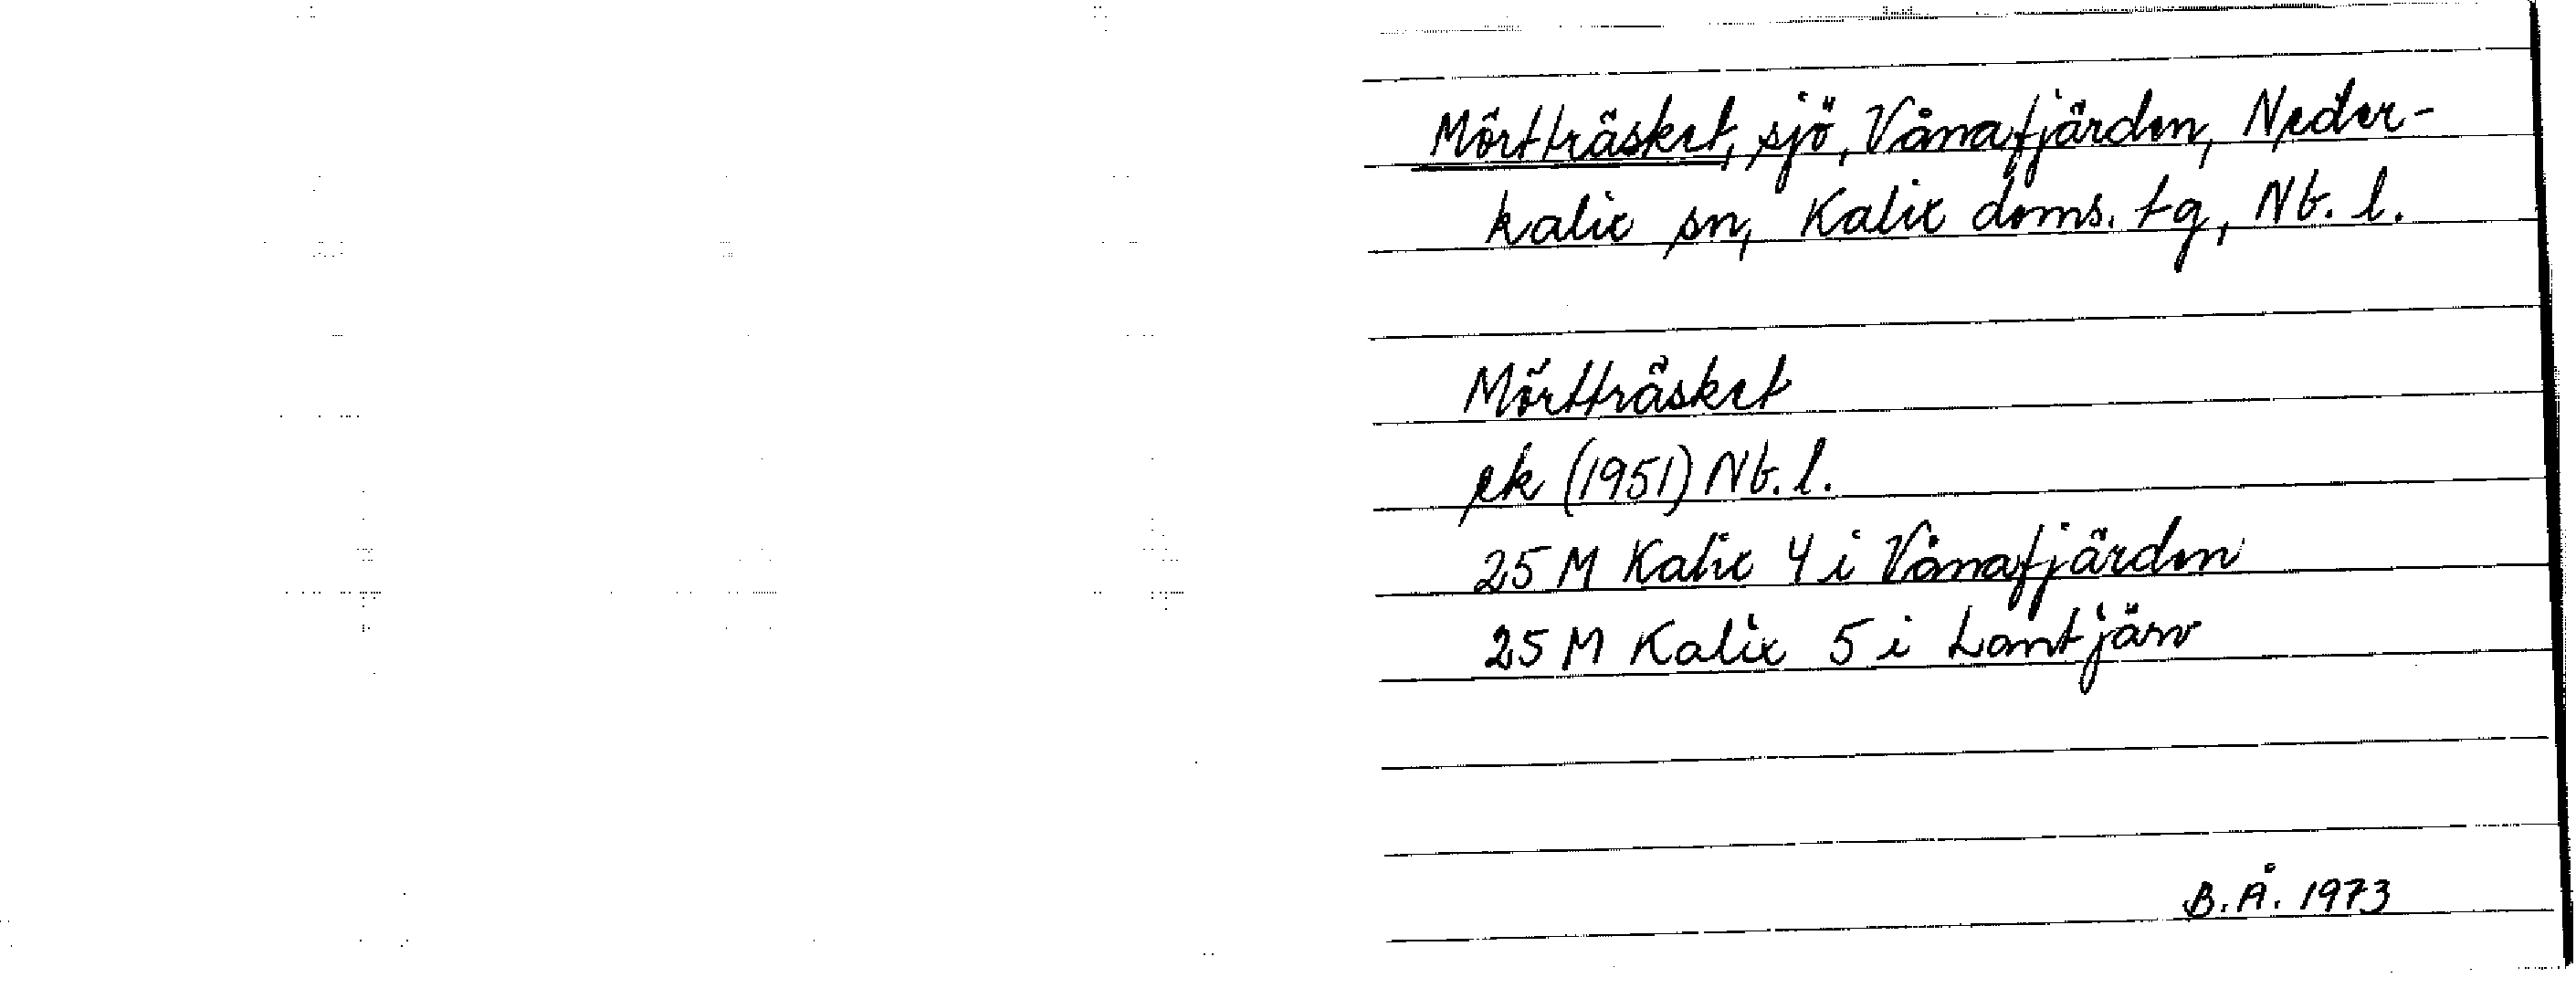 Mörtträsket, sjö, Vånafjärden, Neder-
kalix sn, Kalix doms. tg, Nb. l.
Mörtträsket
ek (1951) Nb. l.
25 M Kalix 4 i Vånafjärden
25 M Kalix 5 i Lantjärv
B. Å. 1973